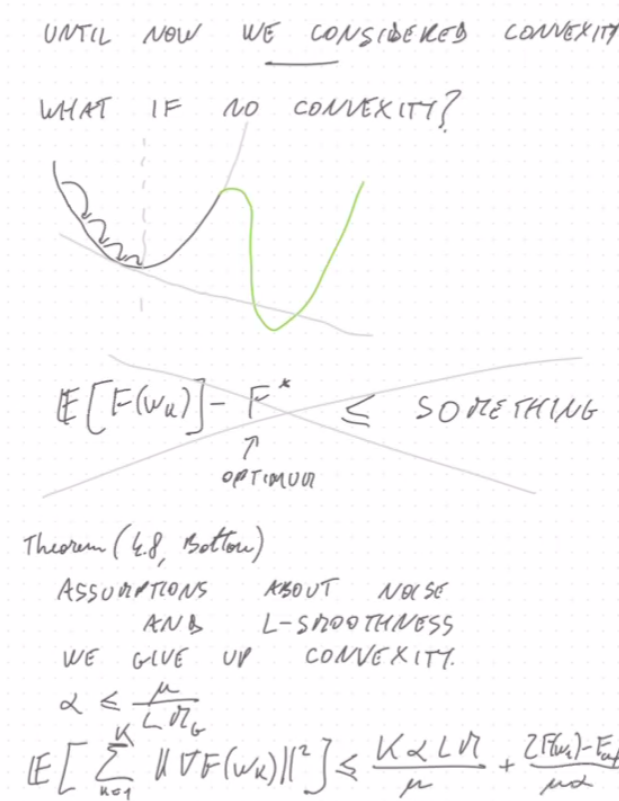 UNTIL NOW WE CONSIDERED CONVEXITY
WHAT IF NO CONVEXITY?
E[F(w_k)] - F* ≤ SOMETHING
↑
OPTIMUM
Theorem (4.8, Bottou)
ASSUMPTIONS ABOUT NOISE
AND L-SMOOTHNESS
WE GIVE UP CONVEXITY.
α ≤ μ / (L M_G)
E[ Σ_{k=1}^{K} ||∇F(w_k)||² ] ≤ (K α L M) / μ + (2(F(w_1) - F_inf)) / (μα)